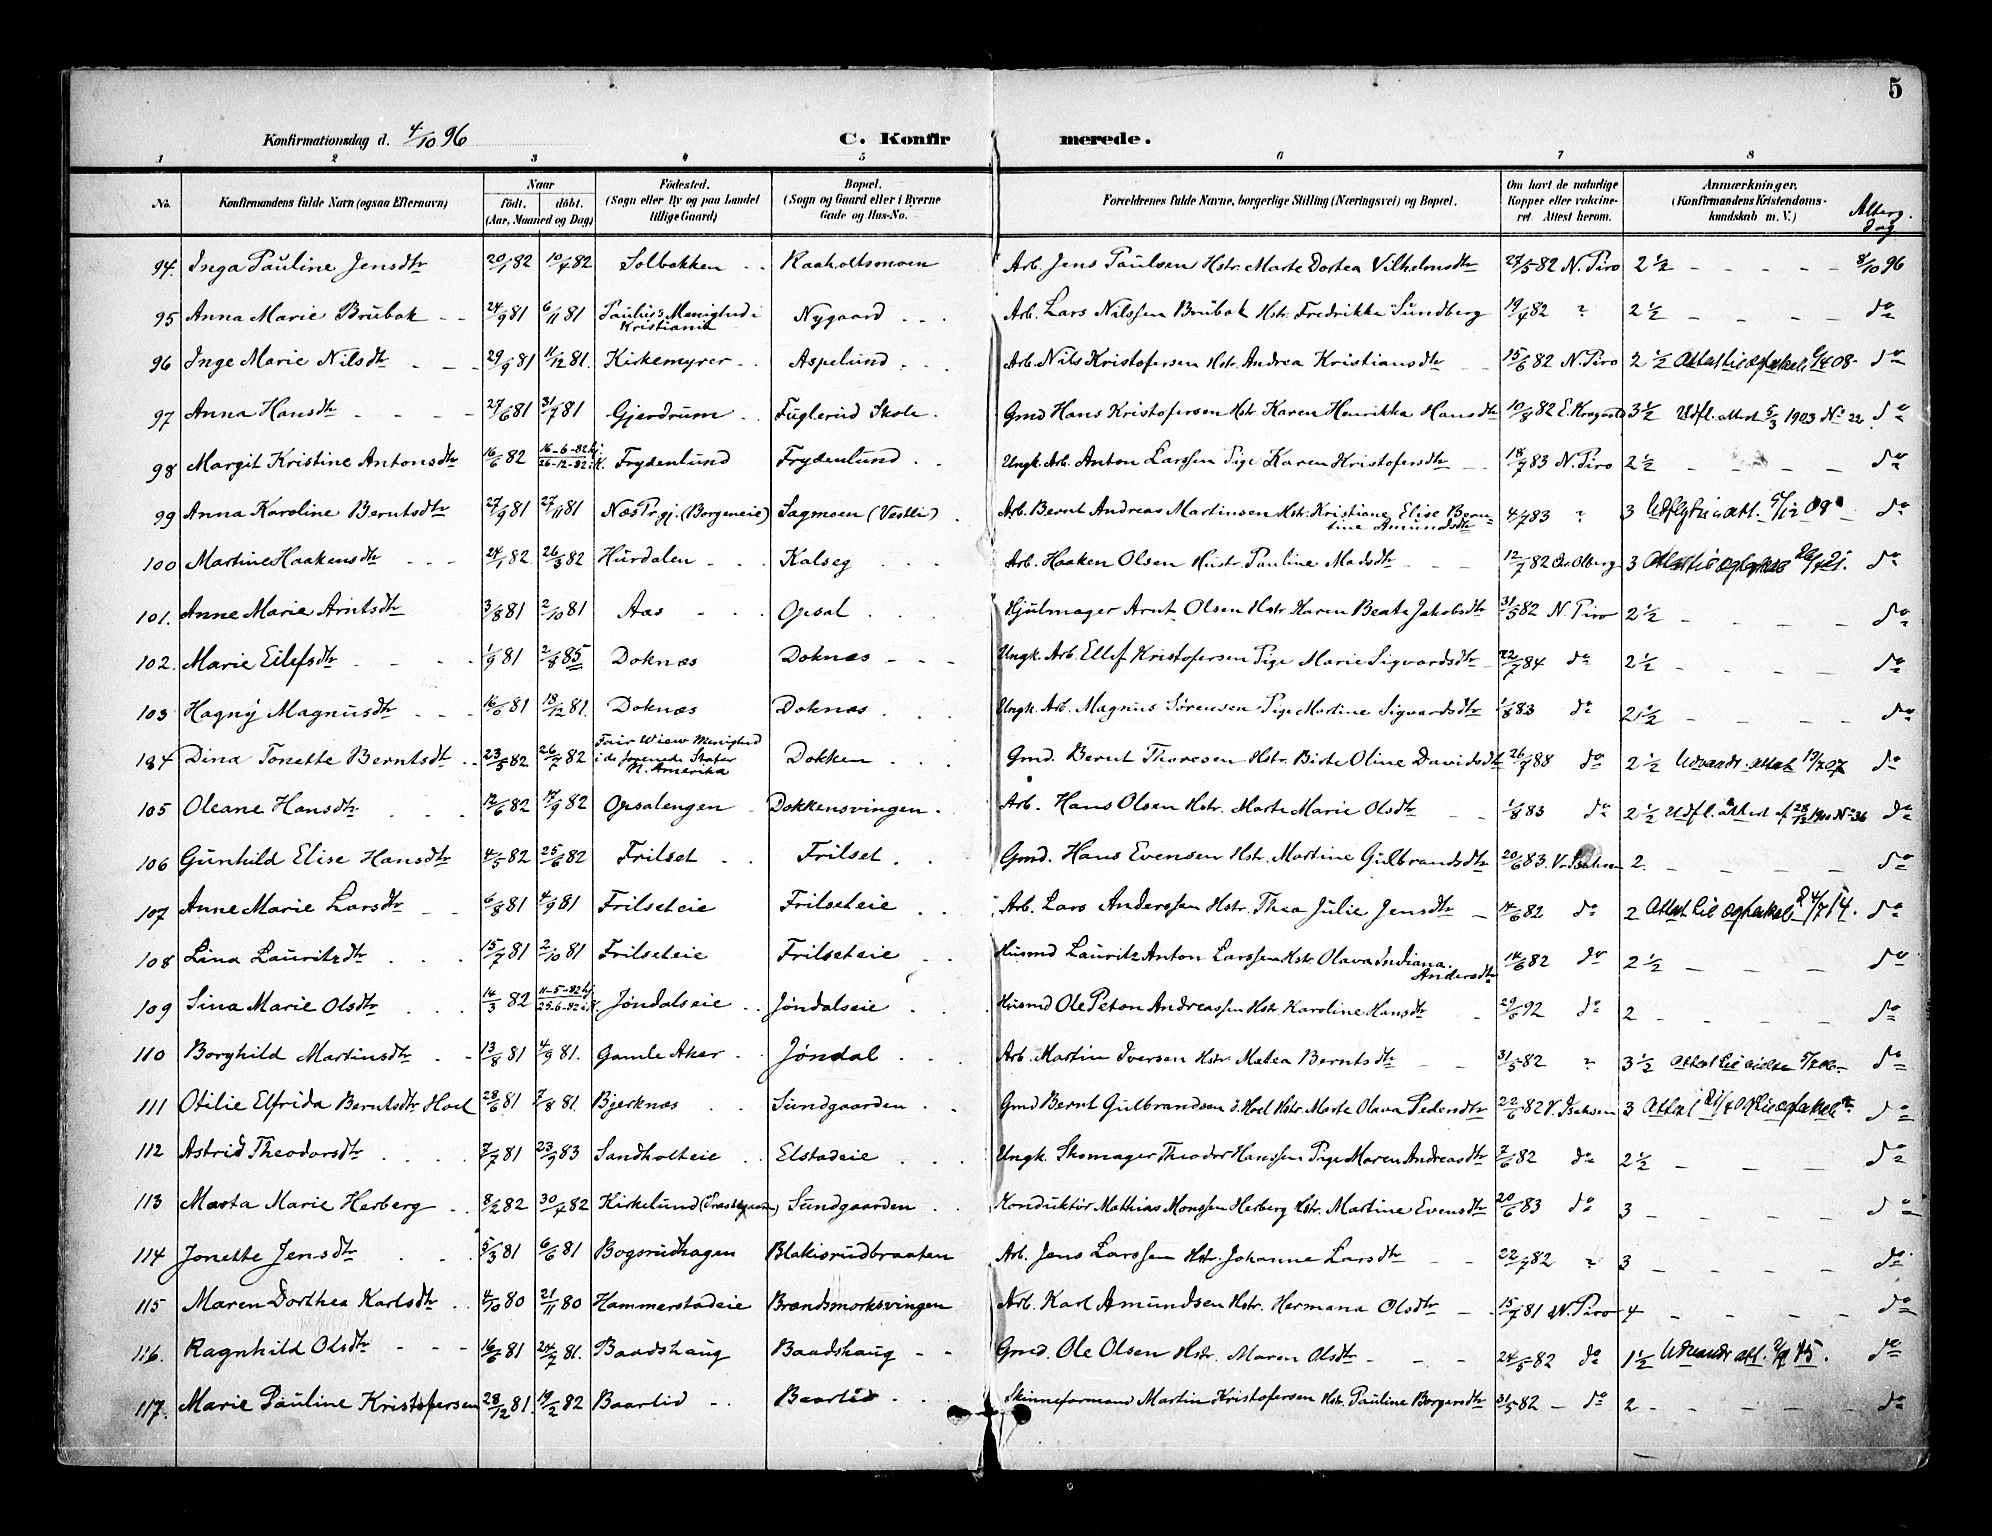 5
Konfirmationsdag d. 4/10 96 C. Konfirmerede.
1 2 3 4 5 6 7 8
No. Konfirmandens fulde Navn (ogsaa Efternavn) Naar født. døbt. (Aar, Maaned og Dag) Fødested. (Sogn eller By og paa Landet tillige Gaard) Bopæl. (Sogn og Gaard eller i Byerne Gade og Hus-No. Forældrenes fulde Navne, borgerlige Stilling (Næringsvei) og Bopæl. Om havt de naturlige Kopper eller vaccineret Attest herom. Anmærkninger. (Konfirmandens Kristendomskundskab m. V.) Alterg. dag
94. Inga Pauline Jensdtr 20/1 82 10/4 82 Solbakken Raaholtsmoen Arb. Jens Paulsen Hstr. Marte Dortea Vilhelmsdtr 27/5 82 N. Piro 2 1/2 8/10 96
95 Anna Marie Brubak 24/9 81 6/11 81 Paulus's Menighed i Kristiania Nygaard Arb. Lars Nilssen Brubak Hstr. Fredrikke Sundberg 19/4 82 " 2 1/2 do
96 Inge Marie Nilsdtr 29/9 81 11/12 81. Kirkemyrer Aspelund Arb. Nils Kristofersen Hstr. Andrea Kristiansdtr 15/6 82 N. Piro 2 1/2 Attest til ægteskab 6/4 08 do
97 Anna Hansdtr 27/6 81 31/7 81 Gjerdrum Fuglerud Skole Gmd Hans Kristofersen Hstr. Karen Henrikka Hansdtr 10/8 82 E. 3 1/2 Udfl. attest 5/3 1903 No 22 do
98 Margit Kristine Antonsdtr 16/6 82 16-6-82 hj. 26-12-82 i K. Frydenlund Frydenlund Ungk. Arb. Anton Larssen Pige Karen Kristofersdtr 18/7 83 N. Piro 2 1/2 do
99 Anna Karoline Berntsdtr 27/9 81 27/11 81 Næs Prgj. (Borgeneie) Sagmoen (Vestli) Arb. Bernt Andreas Martinsen Hstr. Kristiane Elise Berntine Amundsdtr 4/7 83 " 3 Udflytn.att. 5/12 08 do
100 Martine Haakensdtr 24/1 82 26/3 82 Hurdalen Kalseg Arb. Haaken Olsen Hustr. Pauline Madsdtr 12/7 82 Chr. Olberg 3 Attest til ægteskab do
101. Anne Marie Arntsdtr 3/8 81 2/10 81 Aas Opsal Hjulmager Arnt Olsen Hstr. Karen Beate Jakobsdtr 31/5 82 N. Piro 2 1/2 do
102. Marie Eilefsdtr 1/9 81 2/8 85 Doknæs Doknæs Ungk. Arb. Ellef Kristofersen Pige Marie Sigvardsdtr 22/7 84 do 2 1/2 do
103 Hagny Magnusdtr 16/6 81 18/12 81. Doknæs Doknæs Ungk. Arb. Magnus Sørensen Pige Martine Sigvardsdtr 1/8 83 do 2 1/2 do
104 Dina Tonette Berntsdtr 23/5 82 26/7 82 Fair Wiew Menighed i de forenede Stater N. Amerika Dokken Gmd. Bernt Thoresen Hstr. Birte Oline Davidsdtr 26/7 88 do 2 1/2 Udvandr. attest 19/7 07 do
105 Oleane Hansdtr 12/6 82 17/9 82 Opsalengen Dokkensvingen Arb. Hans Olsen Hstr. Marte Marie Olsdtr 1/8 83 do 2 1/2 Udfl. attest af 28/12 1900 No 36 do
106 Gunhild Elise Hansdtr 4/5 82 25/6 82 Frilset Frilset Gmd. Hans Evensen Hstr. Martine Gulbrandsdtr 20/6 83 V. Isaksen 2 do
107 Anne Marie Larsdtr 6/8 81 4/9 81 Frilseteie Frilseteie Arb. Lars Anderssen Hstr. Thea Julie Jensdtr 14/6 82 do 2 Attest til ægteskab 24/7 14. do
108 Lina Lauritzdtr 15/7 81 2/10 81 Frilseteie Frilseteie Husmd Lauritz Anton Larssen Hstr. Olava Indiana Andersdtr 14/6 82 do 2 1/2 do
109 Sina Marie Olsdtr 14/3 82 11-5-82 hj. 25-6-82 i K. Jøndalseie Jøndalseie Husmd Ole Peton Andreassen Hstr. Karoline Hansdtr 29/6 92 do 2 do
110 Borghild Martinsdtr 13/8 81 4/9 81. Gamle Aker Jøndal Arb. Martin Iversen Hstr. Matea Berntsdtr 31/5 82 " 3 1/2 do
111 Otilie Elfrida Berntsdtr Hoel 28/6 81 7/8 81. Bjerknæs Sundgaarden Gmd Bernt Gulbrandsen Hoel Hstr. Marte Olava Pedersdtr 22/6 82 V. Isaksen 3 do
112 Astrid Theodorsdtr 7/7 81 23/9 83 Sandholteie Elstadeie Ungk. Skomager Theodor Hanssen Pige Maren Andreasdtr 7/6 82 do 2 1/2 do
113 Marta Marie Herberg 8/2 82 30/7 82 Kirkelund (Præstegaarden) Sundgaarden Konduktør Mathias Monssen Herberg Hstr. Martine Evensdtr 20/6 83 do 3 do
114 Jonette Jensdtr 5/3 81 6/6 81 Bogsrudhagen Blakisrudbraaten Arb. Jens Larssen Hstr. Johanne Larsdtr 22/7 82 " 3 do
115 Maren Dorthea Karlsdtr 4/10 80 21/11 80 Hammerstadeie Brandsmorksvingen Arb. Karl Amundsen Hstr. Hermana Olsdtr 15/7 81 N. Piro 4 do
116. Ragnhild Olsdtr 16/6 81 24/7 81. Baadshaug Baadshaug Gmd. Ole Olsen Hstr. Maren Olsdtr 24/5 82 do 1 1/2 Udvandr att. do
117. Marie Pauline Kristofersen 28/12 81. 19/2 82 Baarlid Baarlid Skinneformand Martin Kristofersen Hstr. Pauline Borgersdtr 31/5 82 do 2 do